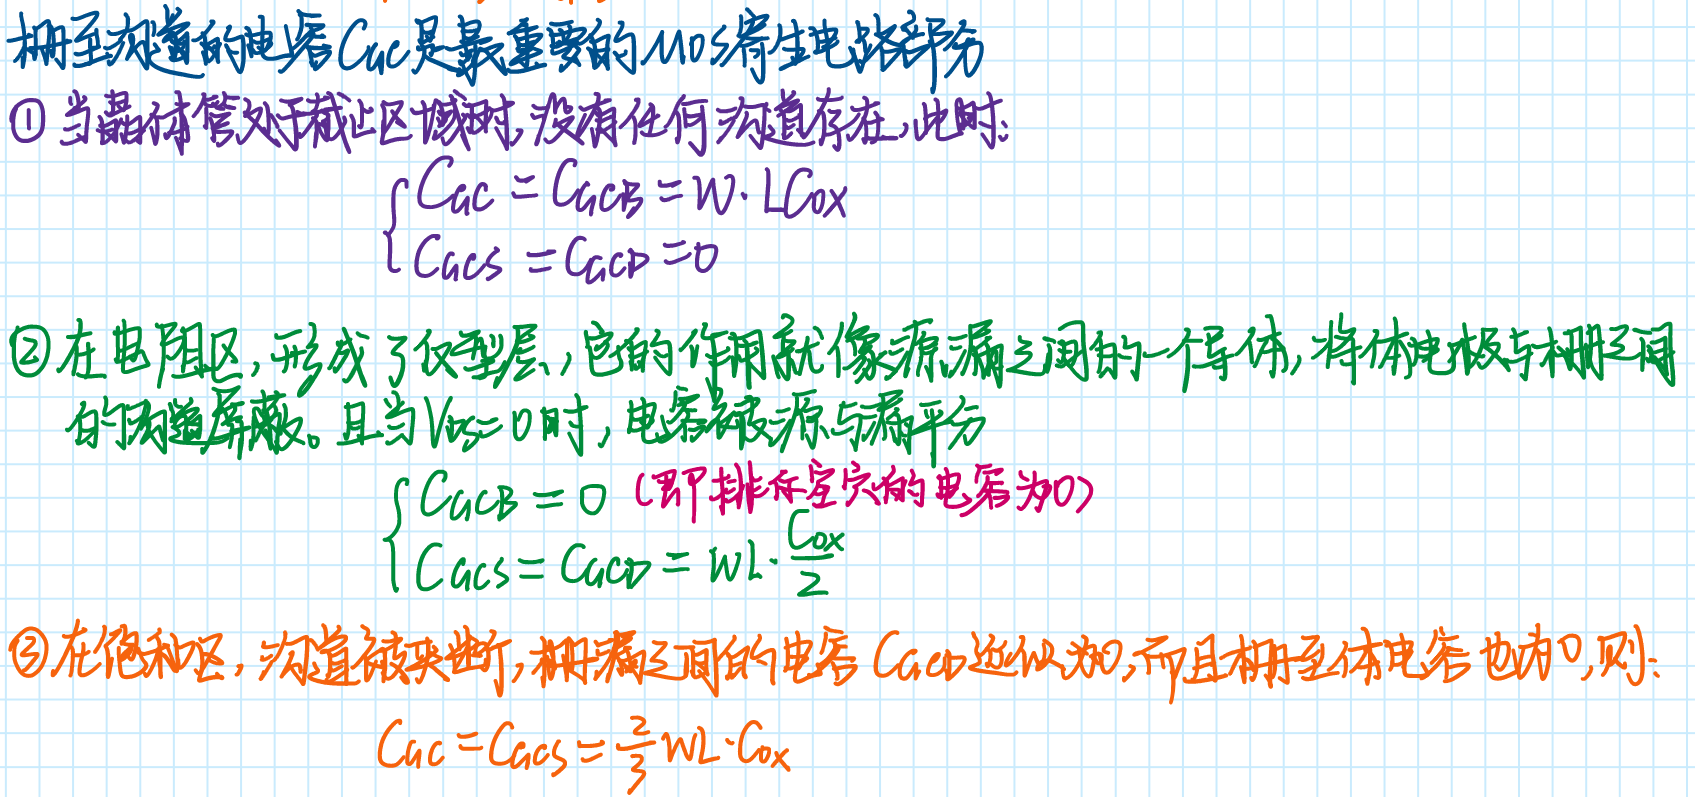 栅至沟道的电容 CGC 是最重要的MOS寄生电路部分
① 当晶体管处于截止区域时,没有任何沟道存在,此时:
CGC = CGCB = W·LCox
CGCS = CGCD = 0
② 在电阻区,形成了反型层,它的作用就像源漏之间的一个导体,将体电极与栅之间
的沟道屏蔽。且当VDS=0时,电容被源与漏平分
CGCB = 0 (即排斥空穴的电容为0)
CGCS = CGCD = WL·Cox/2
③ 在饱和区,沟道被夹断,栅漏之间的电容 CGCD近似为0,而且栅至体电容也为0,则:
CGC = CGCS = 2/3 WL·Cox